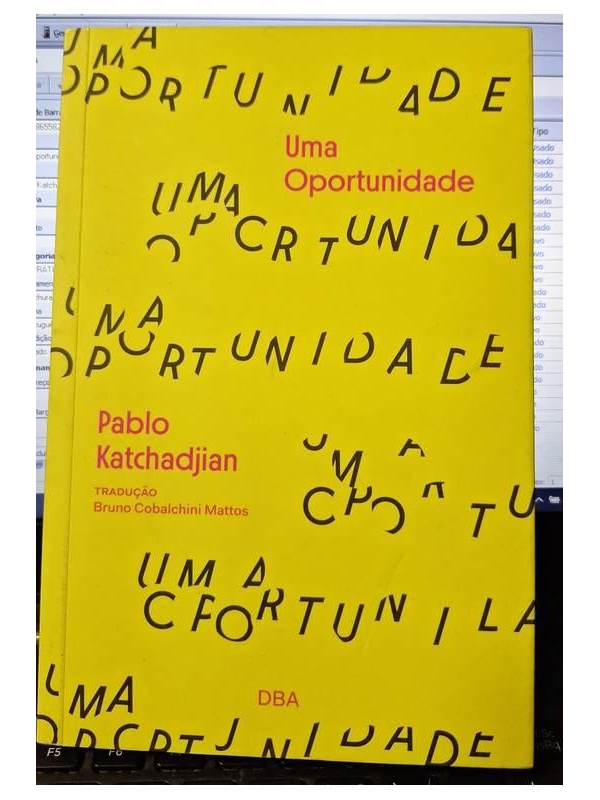 UMA
OPORTUNIDADE
Uma
Oportunidade
UMA
OPORTUNIDA
UMA
OPORTUNIDADE
Pablo
Katchadjian
TRADUÇÃO
Bruno Cobalchini Mattos
UMA
OPORTU
UMA
OPORTUNIDA
DBA
UMA
OPORTUNIDADE
F5
F6
Tipo